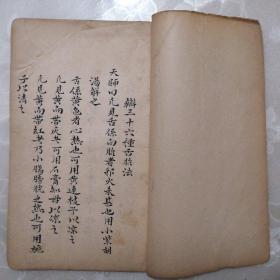 辨三十六種舌胎法
天師曰凡見舌係白胎者邪火未甚也用小柴胡
湯解之
舌係黃色者心熱也可用黃連枝子以涼之
凡見黃而帶灰其可用石膏知母以涼之
凡見黃而帶紅其乃小腸膀胱之熱也可用梔
子以清之